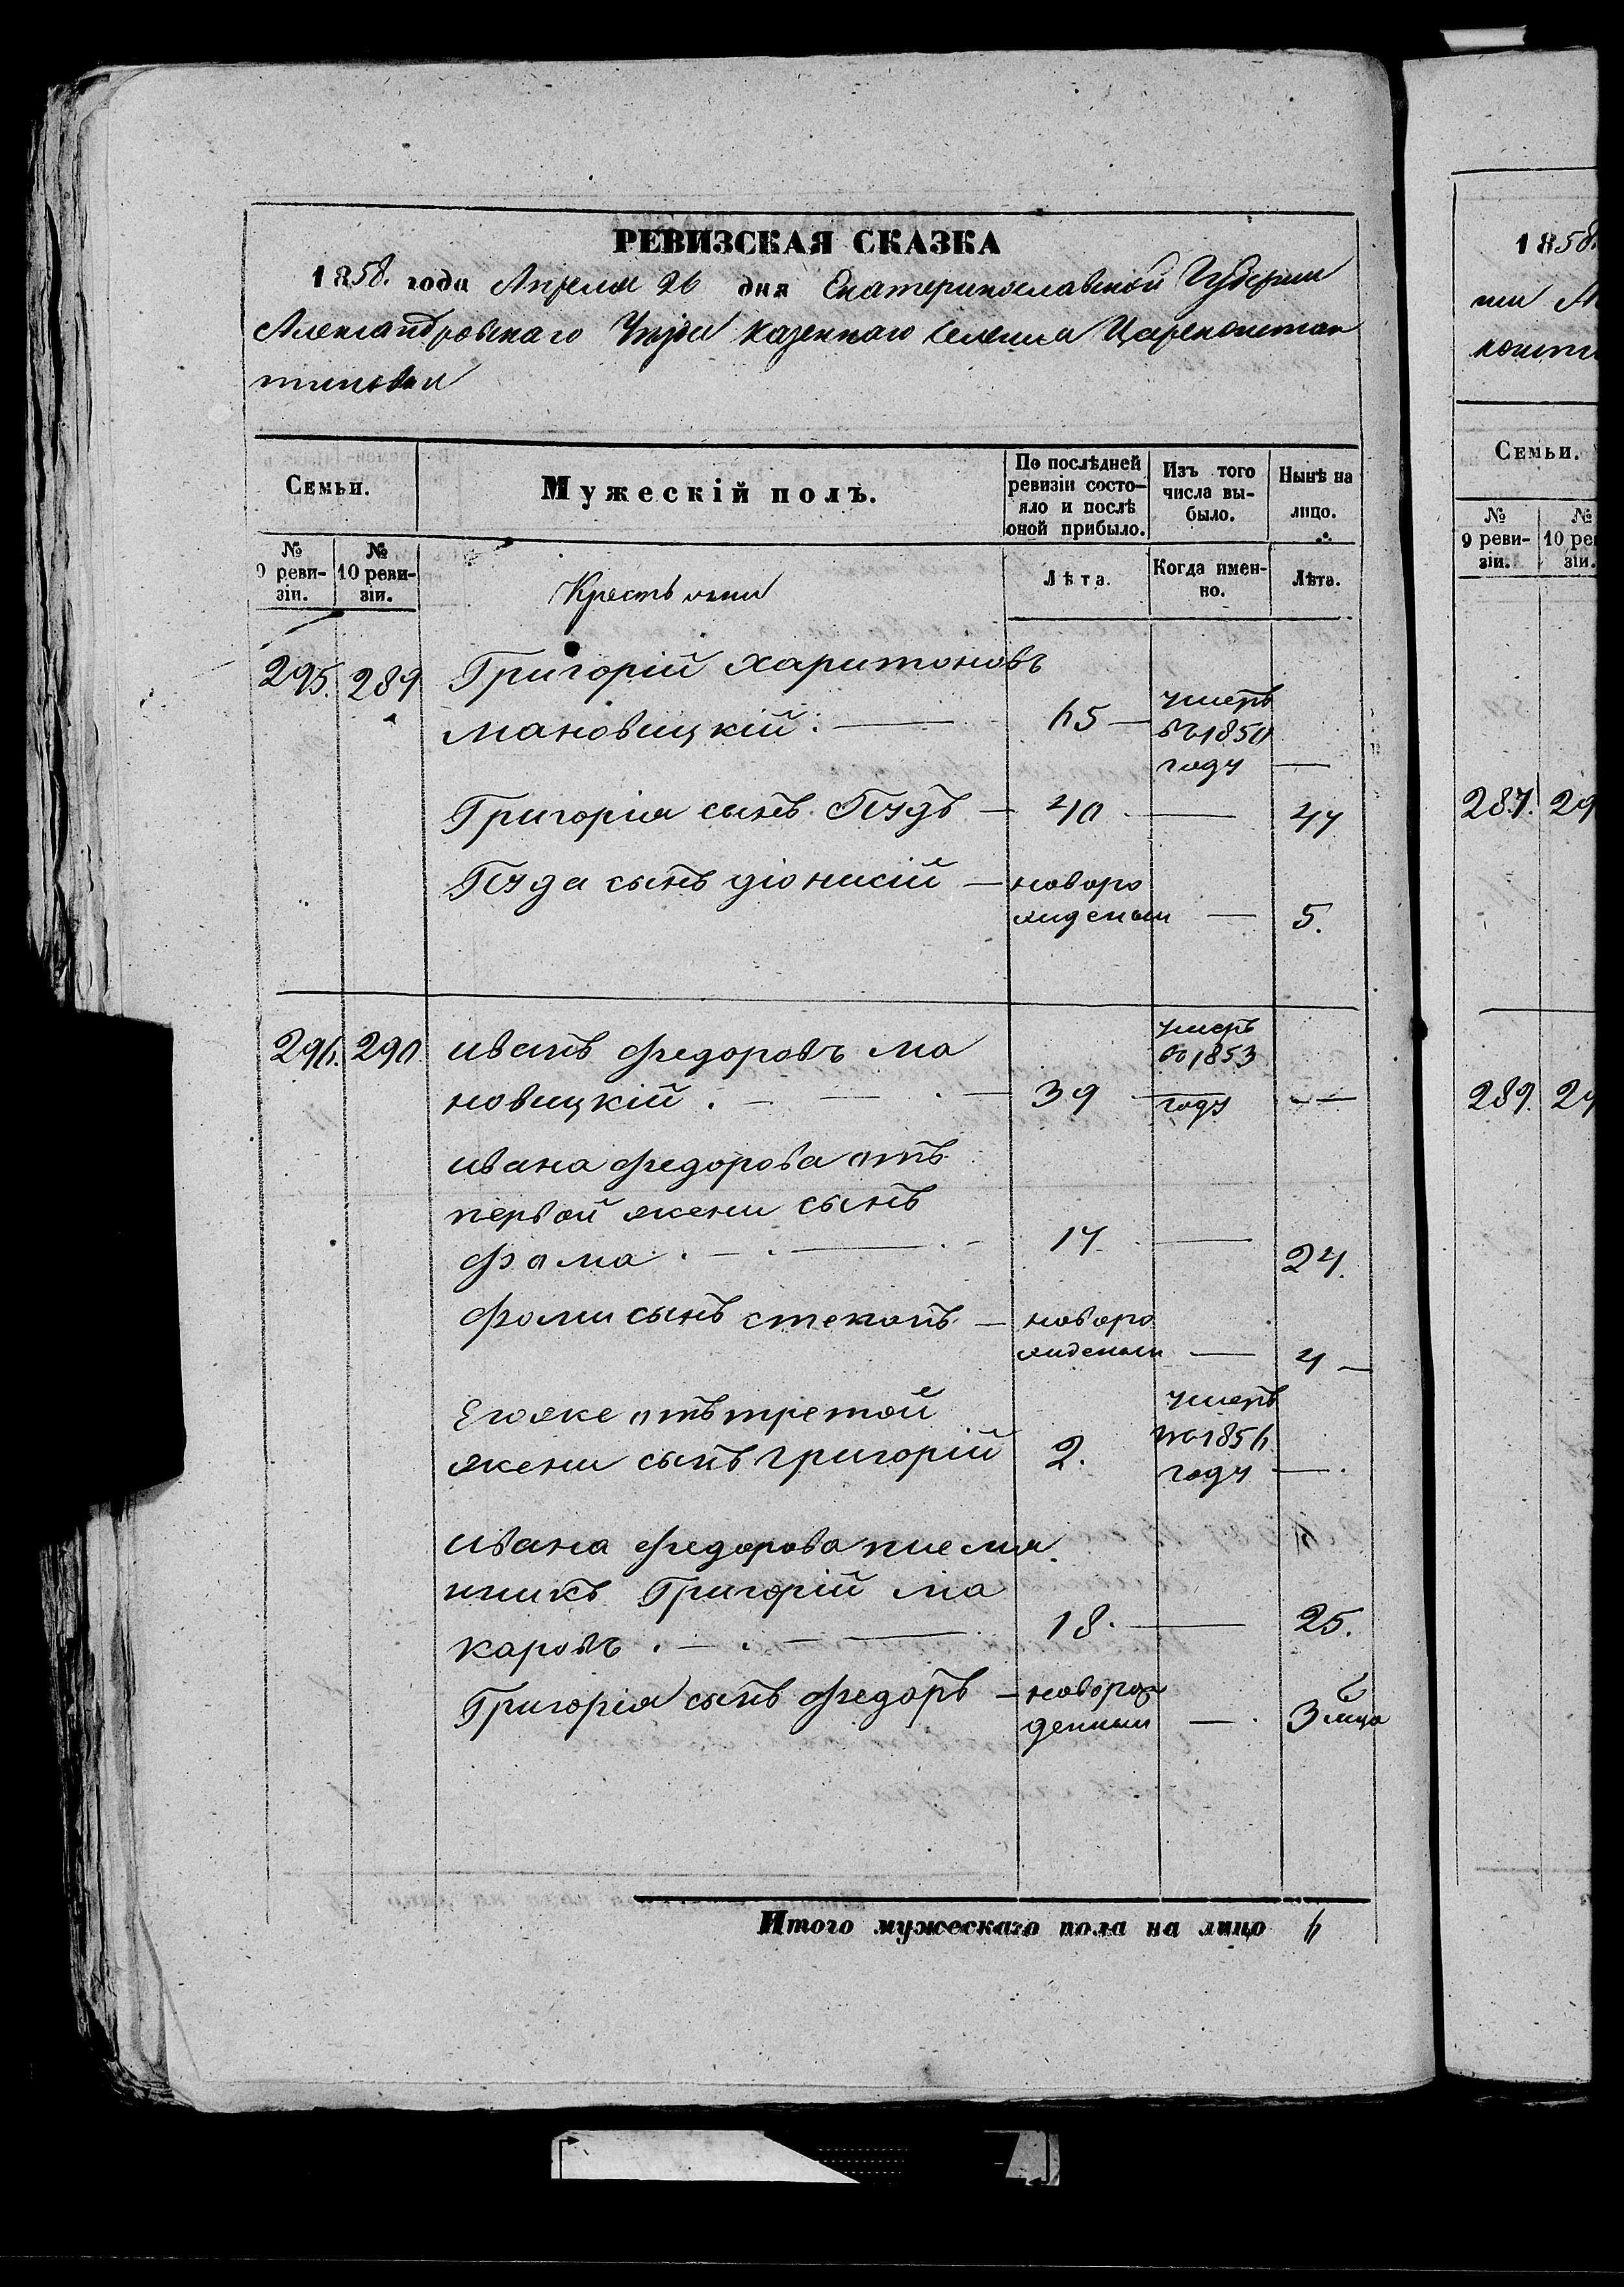 РЕВИЗСКАЯ СКАЗКА
1858. года Апреля 26 дня Екатеринославской Губернии
Александровскаго Уезда казеннаго селения Царекостан
тиновки
Семьи.
Мужескій полъ.
По послѣдней
ревизіи состо-
яло и послѣ
оной прибыло.
Изъ того
числа вы-
было.
Нынѣ на
лицо.
№
9 реви-
зіи.
№
10 реви-
зіи.
Крестьяни
Лѣта.
Когда имен-
но.
Лѣта.
295. 289 Григорій харитоновъ
мановицкій. — 65 — умеръ
въ 1850
году —
Григорія сынъ Пудъ — 40 — 47
Пуда сынъ діонисій — новоро
жденый — 5.
296. 290 иванъ федоровъ ма
новицкій. — 39 умеръ
въ 1853
году —
ивана федорова отъ
первой жени сынъ
фома. — 17. — 24.
фоми сынъ степанъ — новоро
жденый — 4 —
Егоже отъ третой
жени сынъ григорій 2. умеръ
въ 1856
году —.
ивана федорова племя
нникъ Григорій ма
каровъ. — 18. — 25.
Григорія сынъ федоръ — новорож
денный —. 3 мца
Итого мужескаго пола на лицо 6
1858.
Семьи.
№
9 реви-
зіи.
№
287. 29
289. 29